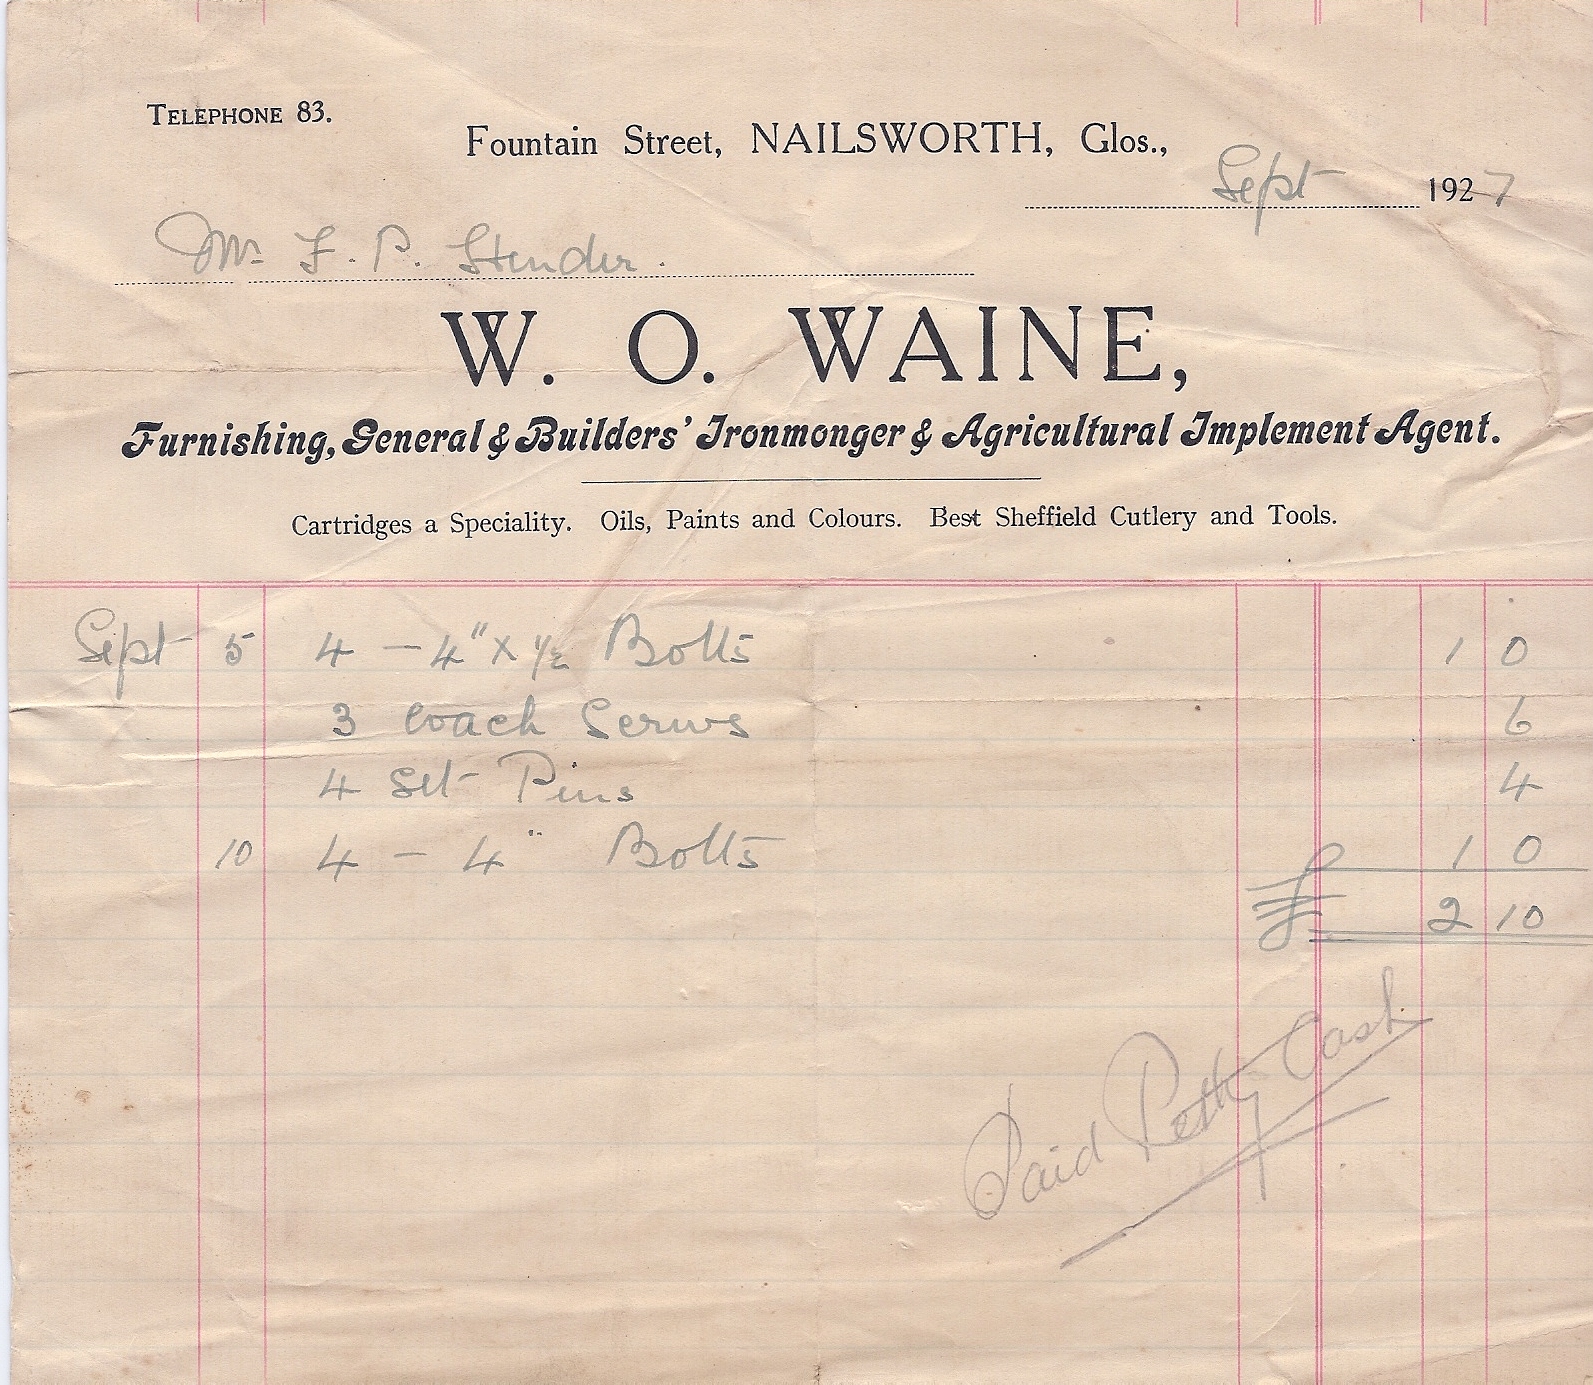 TELEPHONE 83.
Fountain Street, NAILSWORTH, Glos.,
Sept 1927
Mr F. P. Stender.
W. O. WAINE,
Furnishing, General & Builders' Ironmonger & Agricultural Implement Agent.
Cartridges a Speciality. Oils, Paints and Colours. Best Sheffield Cutlery and Tools.
Sept 5 4 – 4" x 1/2 Bolts 1 0
3 Coach Screws 6
4 Set Pins 4
10 4 – 4" Bolts 1 0
£ 2 10
Paid Petty Cash